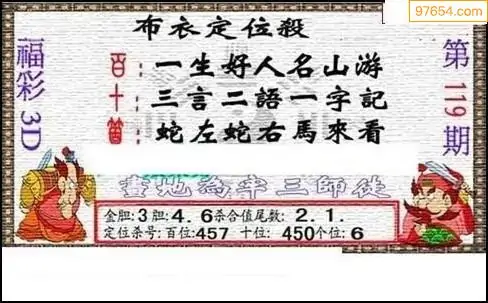 97654.com
布衣定位殺
福彩3D
第119期
百:一生好人名山游
十:三言二語一字記
箇:蛇左蛇右馬來看
畫地為牢三師徒
金胆:3胆:4.6杀合值尾数:2.1.
定位杀号:百位:457 十位:450个位:6